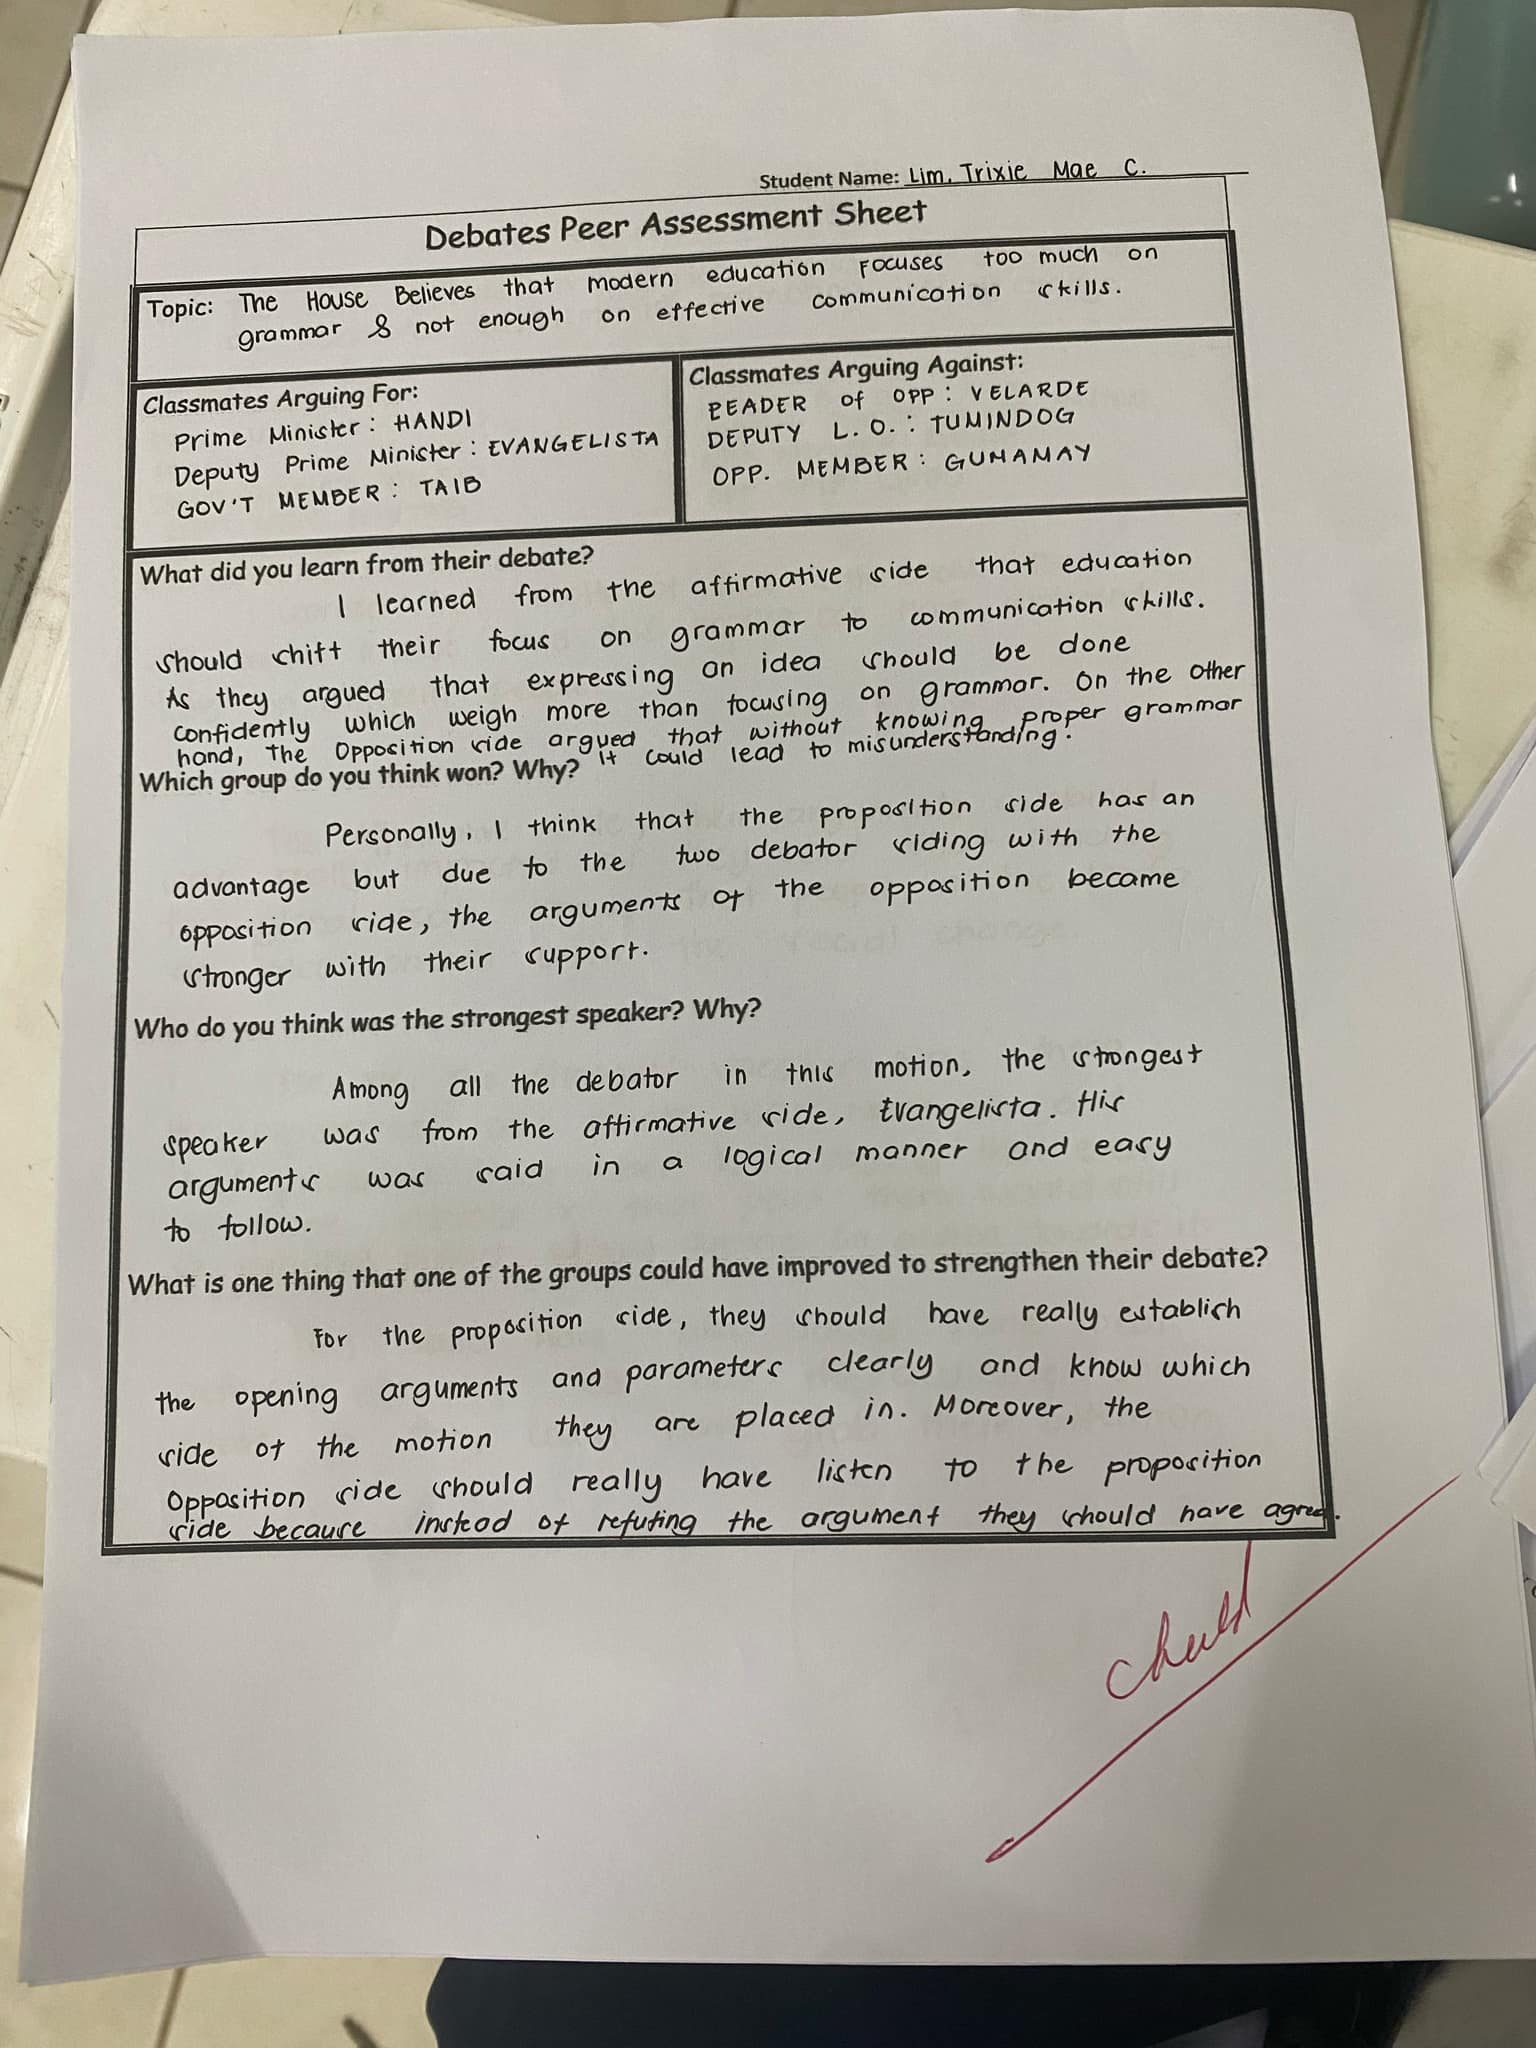 Student Name: Lim, Trixie Mae C.
Debates Peer Assessment Sheet
Topic: The House Believes that modern education focuses too much on
grammar & not enough on effective communication skills.
Classmates Arguing For:
Prime Minister: HANDI
Deputy Prime Minister: EVANGELISTA
GOV'T MEMBER: TAIB
Classmates Arguing Against:
LEADER of OPP: VELARDE
DEPUTY L.O.: TUMINDOG
OPP. MEMBER: GUMAMAY
What did you learn from their debate?
I learned from the affirmative side that education
should shift their focus on grammar to communication skills.
As they argued that expressing an idea should be done
confidently which weigh more than focusing on grammar. On the other
hand, the Opposition side argued that without knowing proper grammar
it could lead to misunderstanding.
Which group do you think won? Why?
Personally, I think that the proposition side has an
advantage but due to the two debator siding with the
opposition side, the arguments of the opposition became
stronger with their support.
Who do you think was the strongest speaker? Why?
Among all the debator in this motion, the strongest
speaker was from the affirmative side, Evangelista. His
arguments was said in a logical manner and easy
to follow.
What is one thing that one of the groups could have improved to strengthen their debate?
For the proposition side, they should have really establish
the opening arguments and parameters clearly and know which
side of the motion they are placed in. Moreover, the
Opposition side should really have listen to the proposition
side because instead of refuting the argument they should have agree.